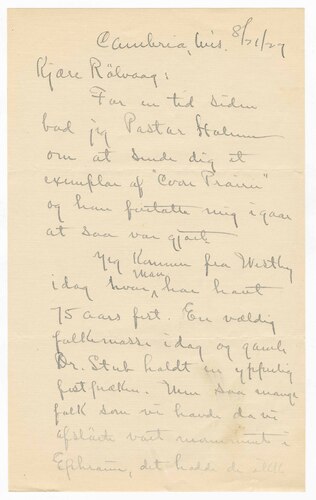 Cambria, Wis. 8/21/27
Kjære Rölvaag:
For en tid siden
bad jeg Pastor Holum
om at sende dig et
exemplar af "Coon Prairie"
og han fortalte mig igaar
at saa var gjort.
Jeg kommer fra Westby
idag hvor man har havt
75 aars fest. En vældig
folkemasse idag og gamle
Dr. Stub holdt en ypperlig
festpræken. Men saa mange
folk som vi havde da vi
afslöde vort monument i
Ephraim, det hadde de ikke